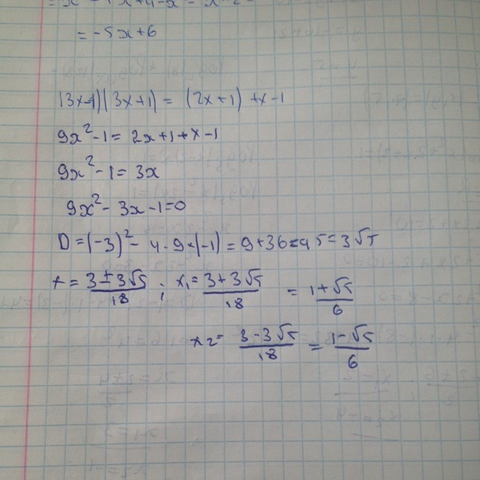 = -5x+6
(3x-1)(3x+1) = (2x+1) +x-1
9x²-1= 2x+1+x-1
9x²-1=3x
9x²-3x-1=0
D=(-3)²-4·9·(-1)=9+36=45=3√5
x= 3±3√5/18 ; x₁= 3+3√5/18 = 1+√5/6
x₂= 3-3√5/18 = 1-√5/6